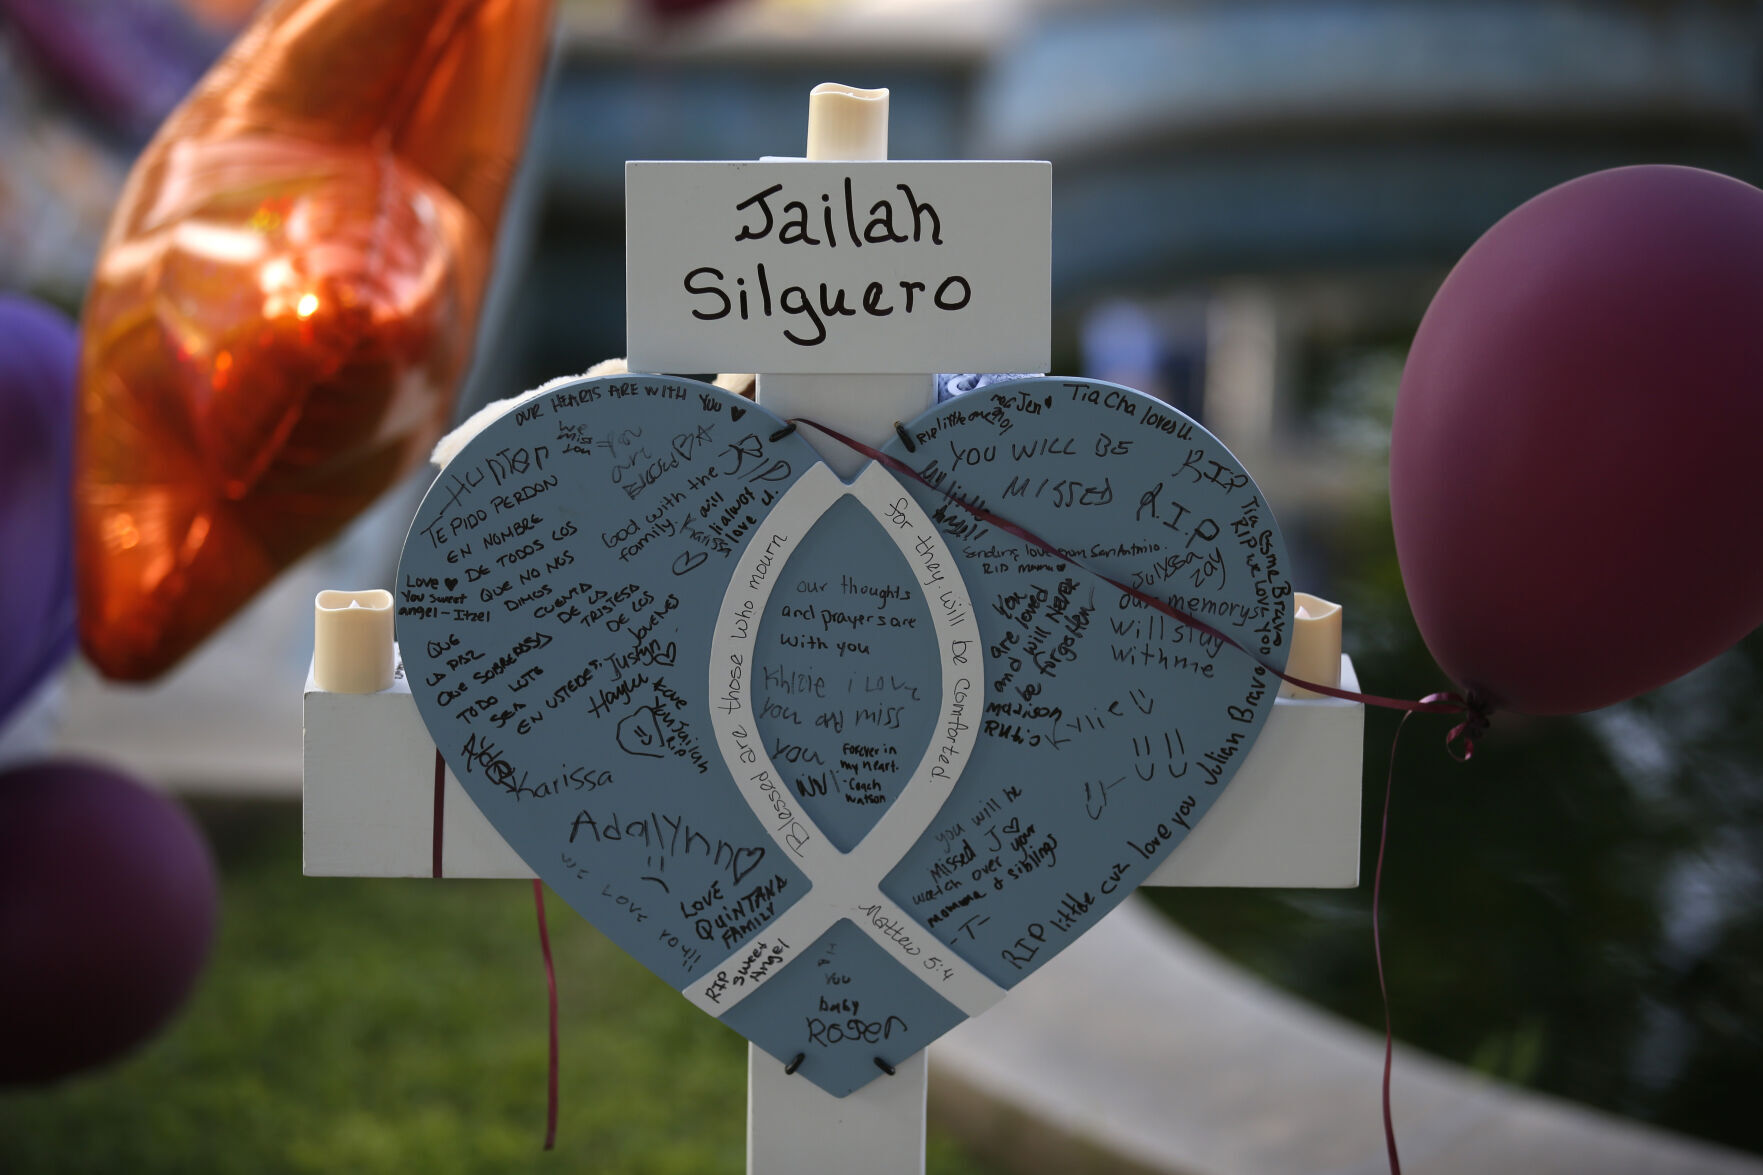 Jailah
Silguero
OUR HEARTS ARE WITH YOU
we
miss
you
you
are
Blessed
HUNTER
RIP
TE PIDO PERDON
EN NOMBRE
DE TODOS LOS
QUE NO NOS
DIMOS CUENTA
DE LA TRISTESA
DE LOS
JOVENES
QUE
LA PAZ
QUE SOBREPASA
TODO LUTO
SEA
EN USTEDES.
Good with the
family.
I will
always
love u.
Karissa
Love
You sweet
angel - Itzel
Justyn
Haylu
Love
You Jailah
RIP
Karissa
Adalynn
we love you
LOVE
QUINTANA
FAMILY
RIP
Sweet
Angel
Blessed are those who mourn
for they will be comforted.
Matthew 5:4
our thoughts
and prayers are
with you
i Love
you and miss
you
Forever in
my heart.
- Coach
Watson
RIP little one
Jen
Tia Cha loves U.
YOU WILL BE
MISSED
my little
RIP
R.I.P
Sending love from San Antonio.
RIP mama
Julyssa
Zay
You
are loved
and will Never
be forgotten
Madison
Ruby
our memorys
will stay
with me
Tia Esme Bravo
RIP we Love You
Kylie
you will be
Missed J
watch over your
momma & siblings
-T-
RIP little cuz love you Julian Bravo
You
baby
Roger